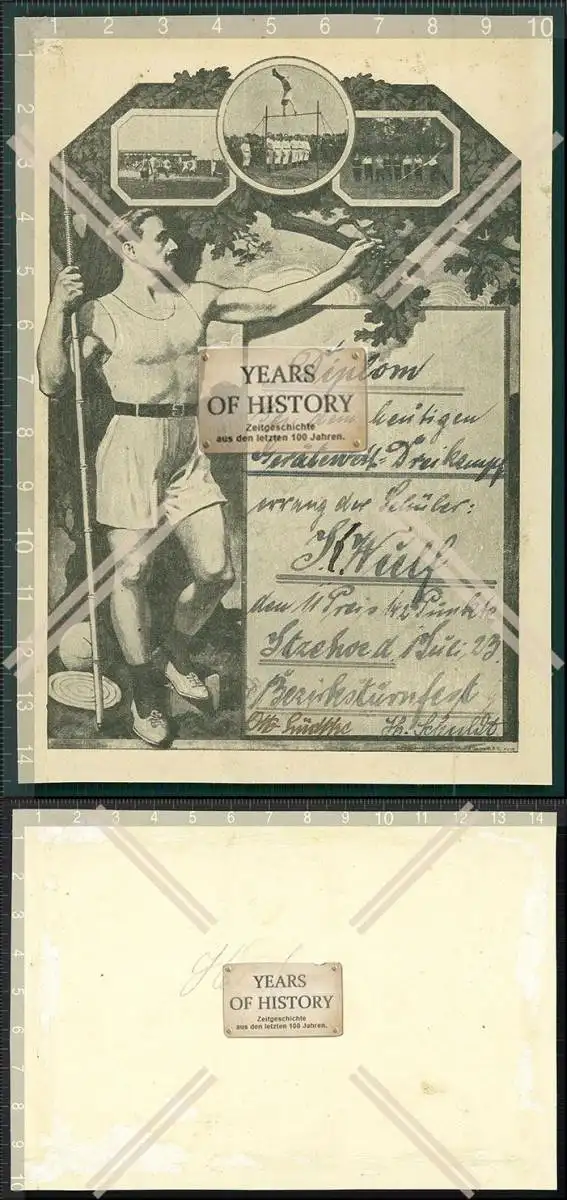 1 2 3 4 5 6 7 8 9 10
1
2
3
4
5
6
7
8
9
10
11
12
13
14
Diplom
dem heutigen
Dreikampf
errang der Schüler:
K. Wulf
den 11 Preis 42 Punkte
Itzehoe d. Juli 23.
Bezirksturnfest
Otto Lüdtke H. Schuldt
YEARS
OF HISTORY
Zeitgeschichte
aus den letzten 100 Jahren.
1 2 3 4 5 6 7 8 9 10 11 12 13 14
1
2
3
4
5
6
7
8
9
10
YEARS
OF HISTORY
Zeitgeschichte
aus den letzten 100 Jahren.